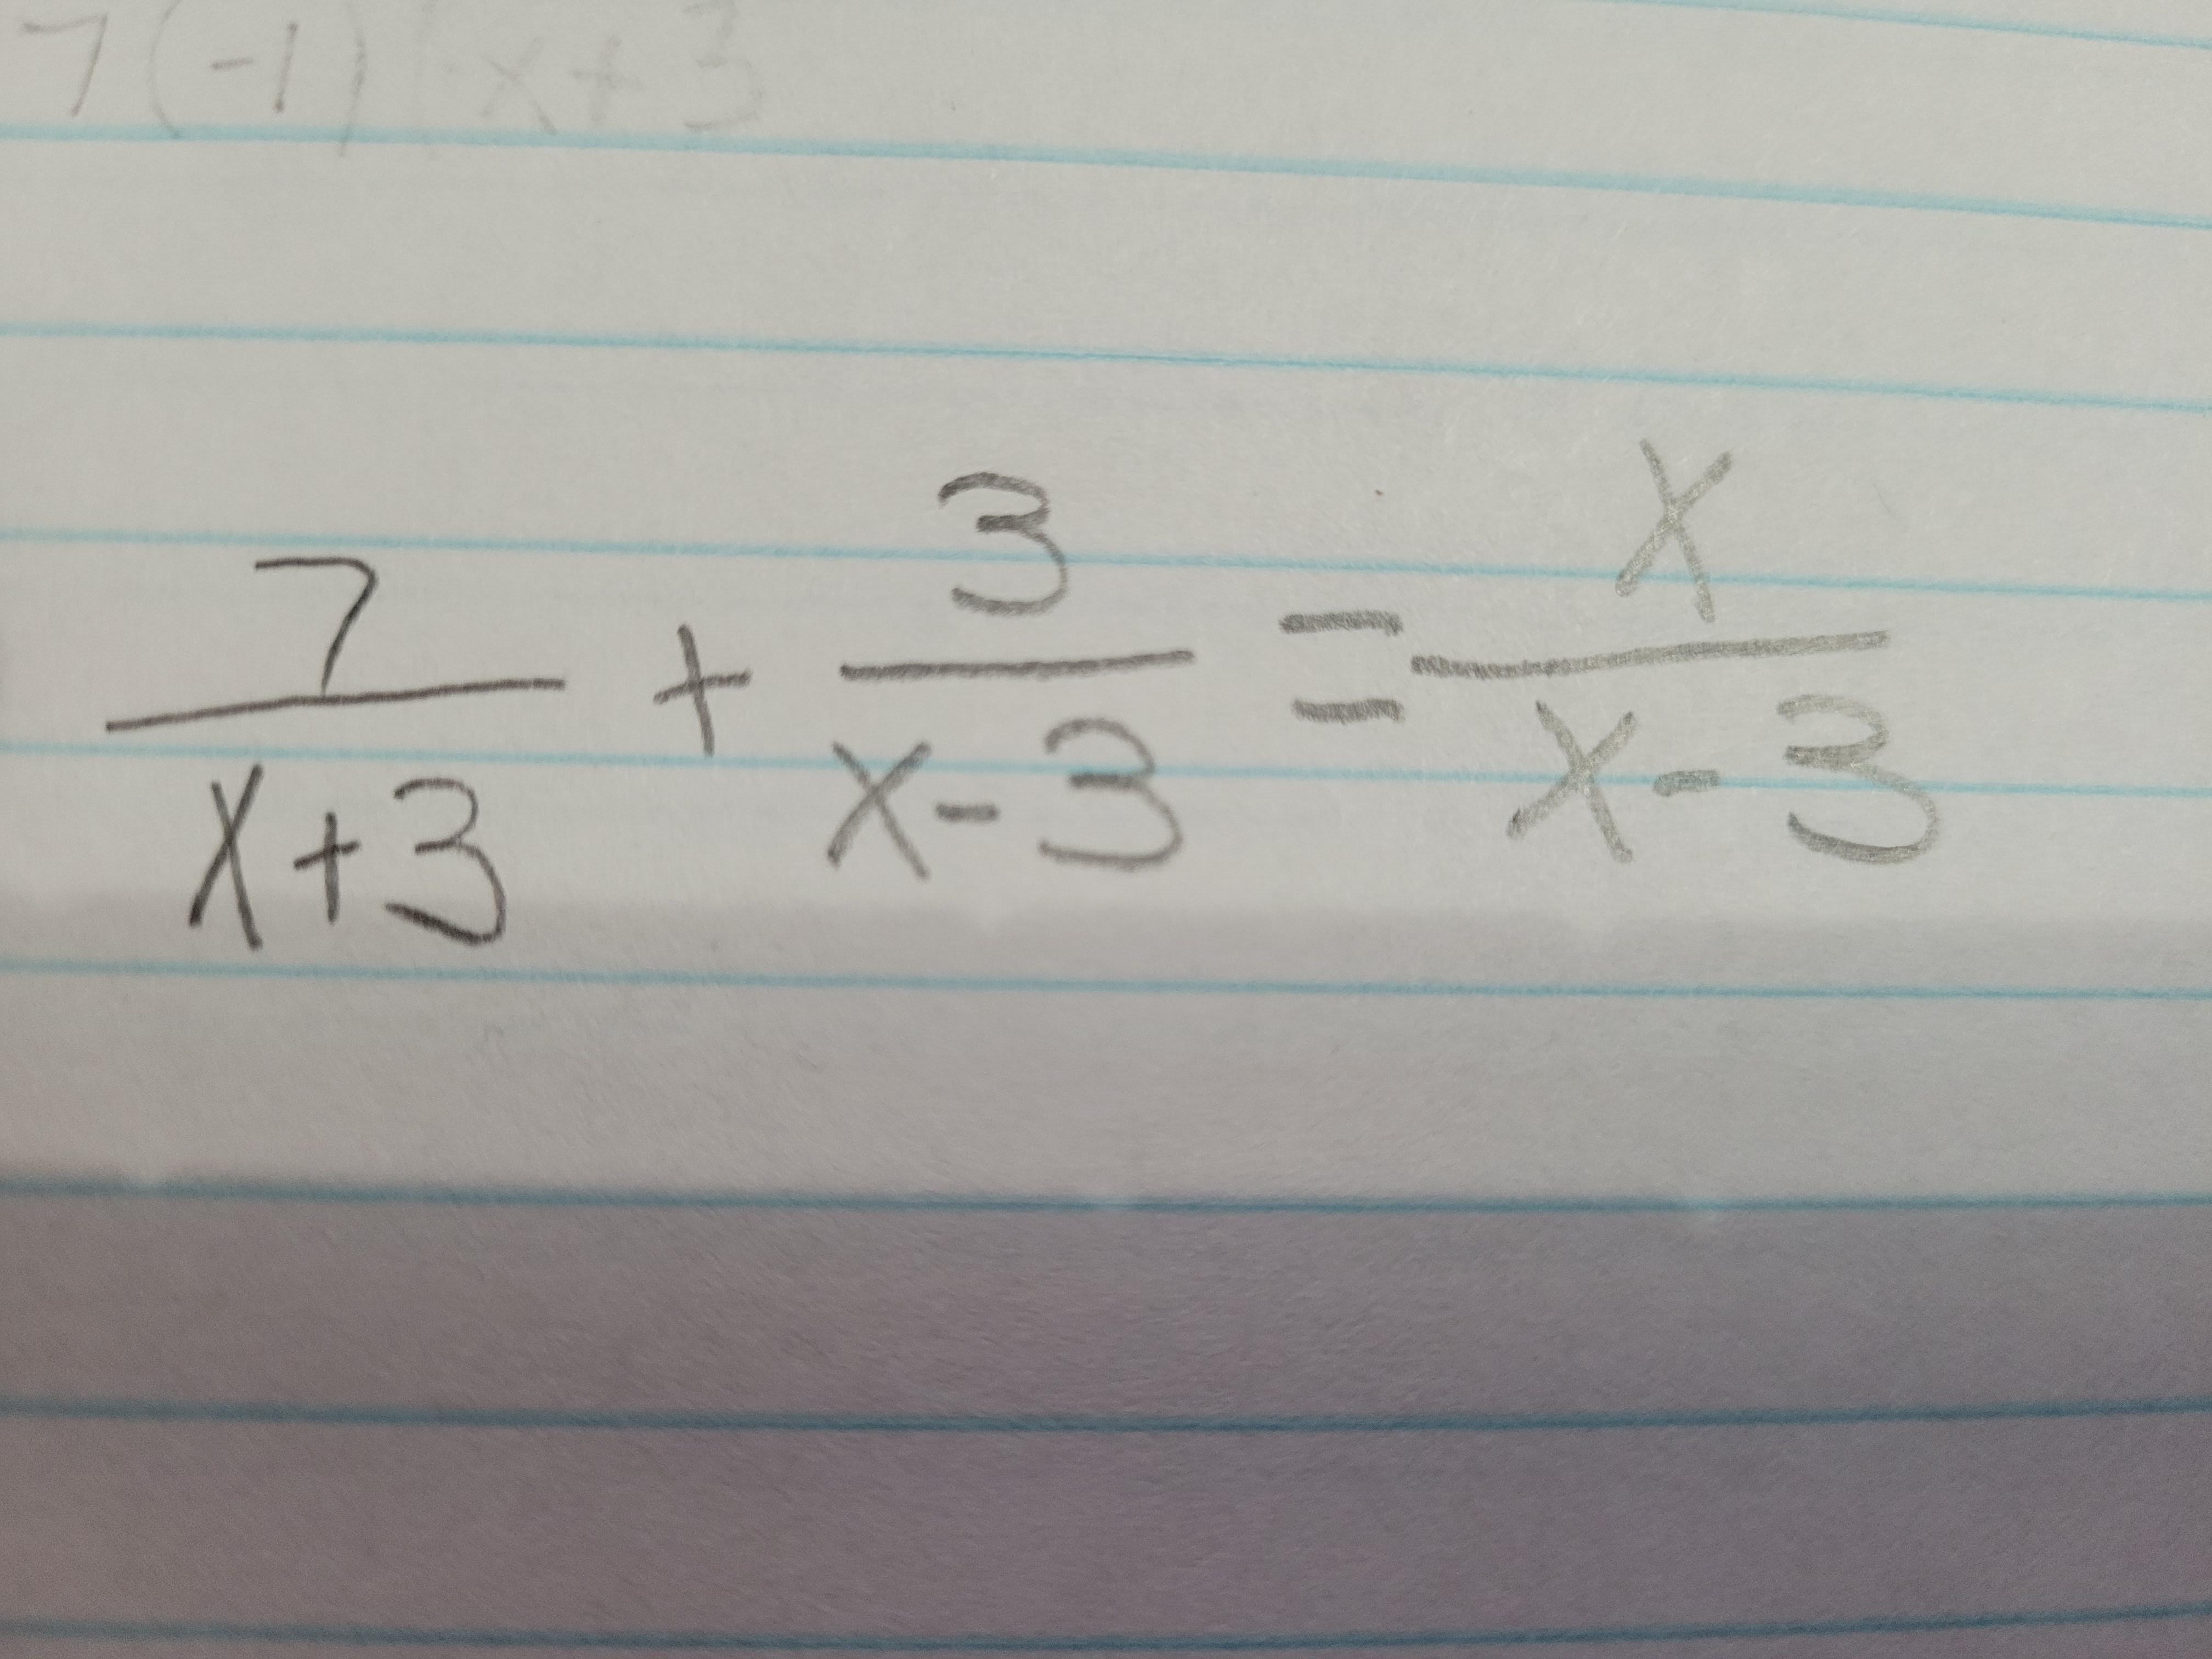 7(-1)(x+3
7/(x+3) + 3/(x-3) = x/(x-3)